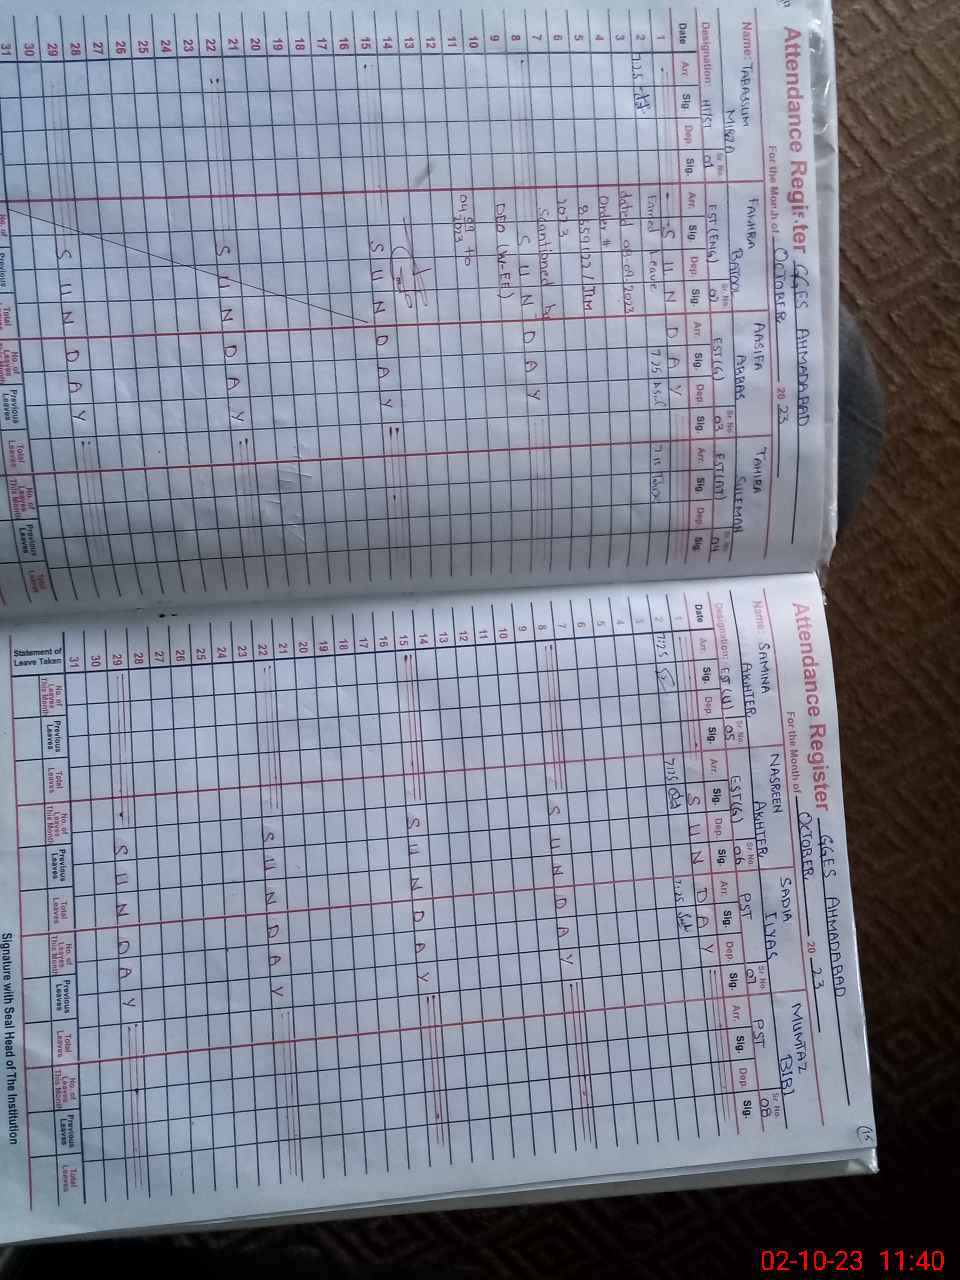 Attendance Register GGES AHMADABAD
For the Month of OCTOBER, 20 23
Name: TABASSUM MIRZA
FAKHRA BATOOL
AASIFA ABBAS
TAHIRA SULEMAN
Sr. No. Sr. No. Sr. No. Sr. No.
Designation: 01 EST(ENG) 02 EST(G) 03 04
Date Arr. Sig. Dep. Sig. Arr. Sig. Dep. Sig. Arr. Sig. Dep. Sig. Arr. Sig. Dep. Sig.
1 SUNDAY
2 7:25 Earned Leave 7:25 7:25
3 dated 09.09.2023
4 Order #
5
6 2023
7 Sanctioned by
8 SUNDAY
9 DEO (W-EE)
10
11 to
12
13
14
15 SUNDAY
16
17
18
19
20
21
22 SUNDAY
23
24
25
26
27
28
29 SUNDAY
30
31
No. of Previous Total
No. of Leaves This Month Previous Leaves Total Leaves No. of Leaves This Month Previous Leaves Total Leaves
Attendance Register GGES AHMADABAD
For the Month of OCTOBER, 20 23
15
Name: SAMINA AKHTER
NASREEN AKHTER
SADIA ILYAS
MUMTAZ BIBI
Sr. No. Sr. No. Sr. No. Sr. No.
Designation: EST(U) 05 EST(G) 06 PST 07 PST 08
Date Arr. Sig. Dep. Sig. Arr. Sig. Dep. Sig. Arr. Sig. Dep. Sig. Arr. Sig. Dep. Sig.
1 SUNDAY
2 7:25 7:25 7:25
3
4
5
6
7
8 SUNDAY
9
10
11
12
13
14
15 SUNDAY
16
17
18
19
20
21
22 SUNDAY
23
24
25
26
27
28
29 SUNDAY
30
31
Statement of Leave Taken No. of Leaves This Month Previous Leaves Total Leaves No. of Leaves This Month Previous Leaves Total Leaves No. of Leaves This Month Previous Leaves Total Leaves No. of Leaves This Month Previous Leaves Total Leaves
Signature with Seal Head of The Institution
02-10-23 11:40